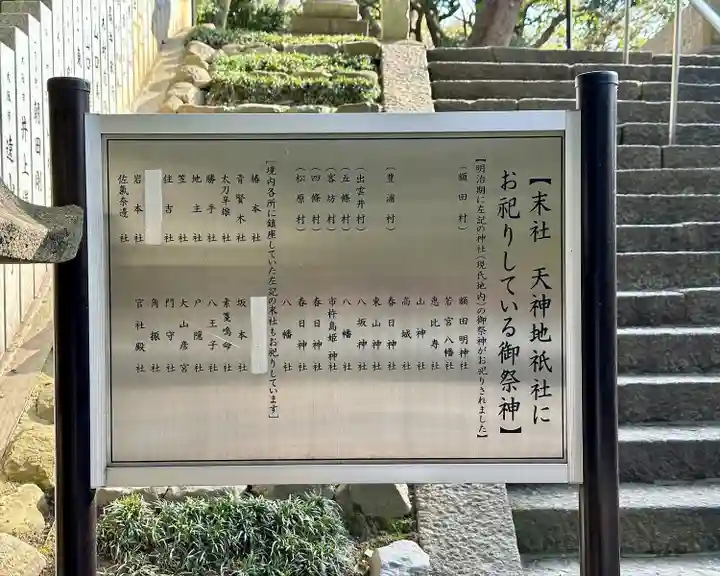 【末社 天神地祇社に
お祀りしている御祭神】
【明治期に左記の神社(現氏地内)の御祭神がお祀りされました】
(額田村) 額田明神社
若宮八幡社
恵比寿社
山神社
高城社
(豊浦村) 春日神社
東山神社
(出雲井村) 八坂神社
(五條村) 八幡社
(客坊村) 市杵島姫神社
(四條村) 春日神社
(松原村) 春日神社
八幡社
[境内各所に鎮座していた左記の末社もお祀りしています]
椿本社
青賢木社 坂本社
太刀辛雄社 素戔鳴命社
勝手社 八王子社
地主社 戸隠社
笠社 大山彦宮
住吉社 門守社
角振社
岩本社 官社殿社
佐氣奈邊社
朝田剛
井上